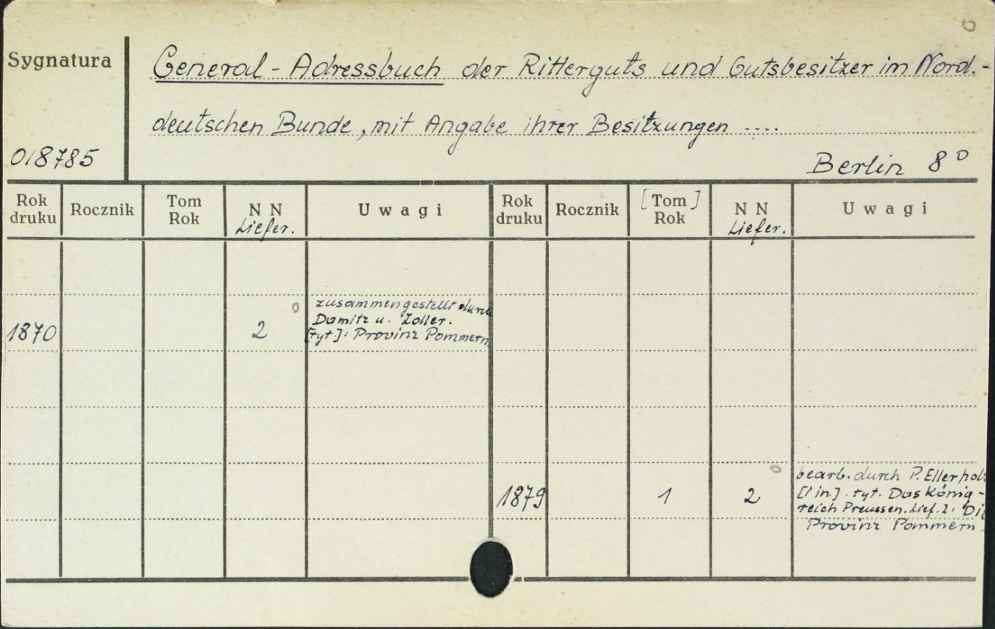 Sygnatura
General-Adressbuch der Ritterguts und Gutsbesitzer im Nord.-
deutschen Bunde, mit Angabe ihrer Besitzungen ....
018785
Berlin 8º
Rok druku Rocznik Tom Rok N N Liefer. Uwagi Rok druku Rocznik [Tom] Rok N N Liefer. Uwagi
zusammengestellt durch
1870 2 Domitz u. Zoller.
[tyt]: Provinz Pommern
bearb. durch P. Ellerholz
1879 1 2 [i in]. tyt. Das König-
reich Preussen. Lief. 2: Die
Provinz Pommern